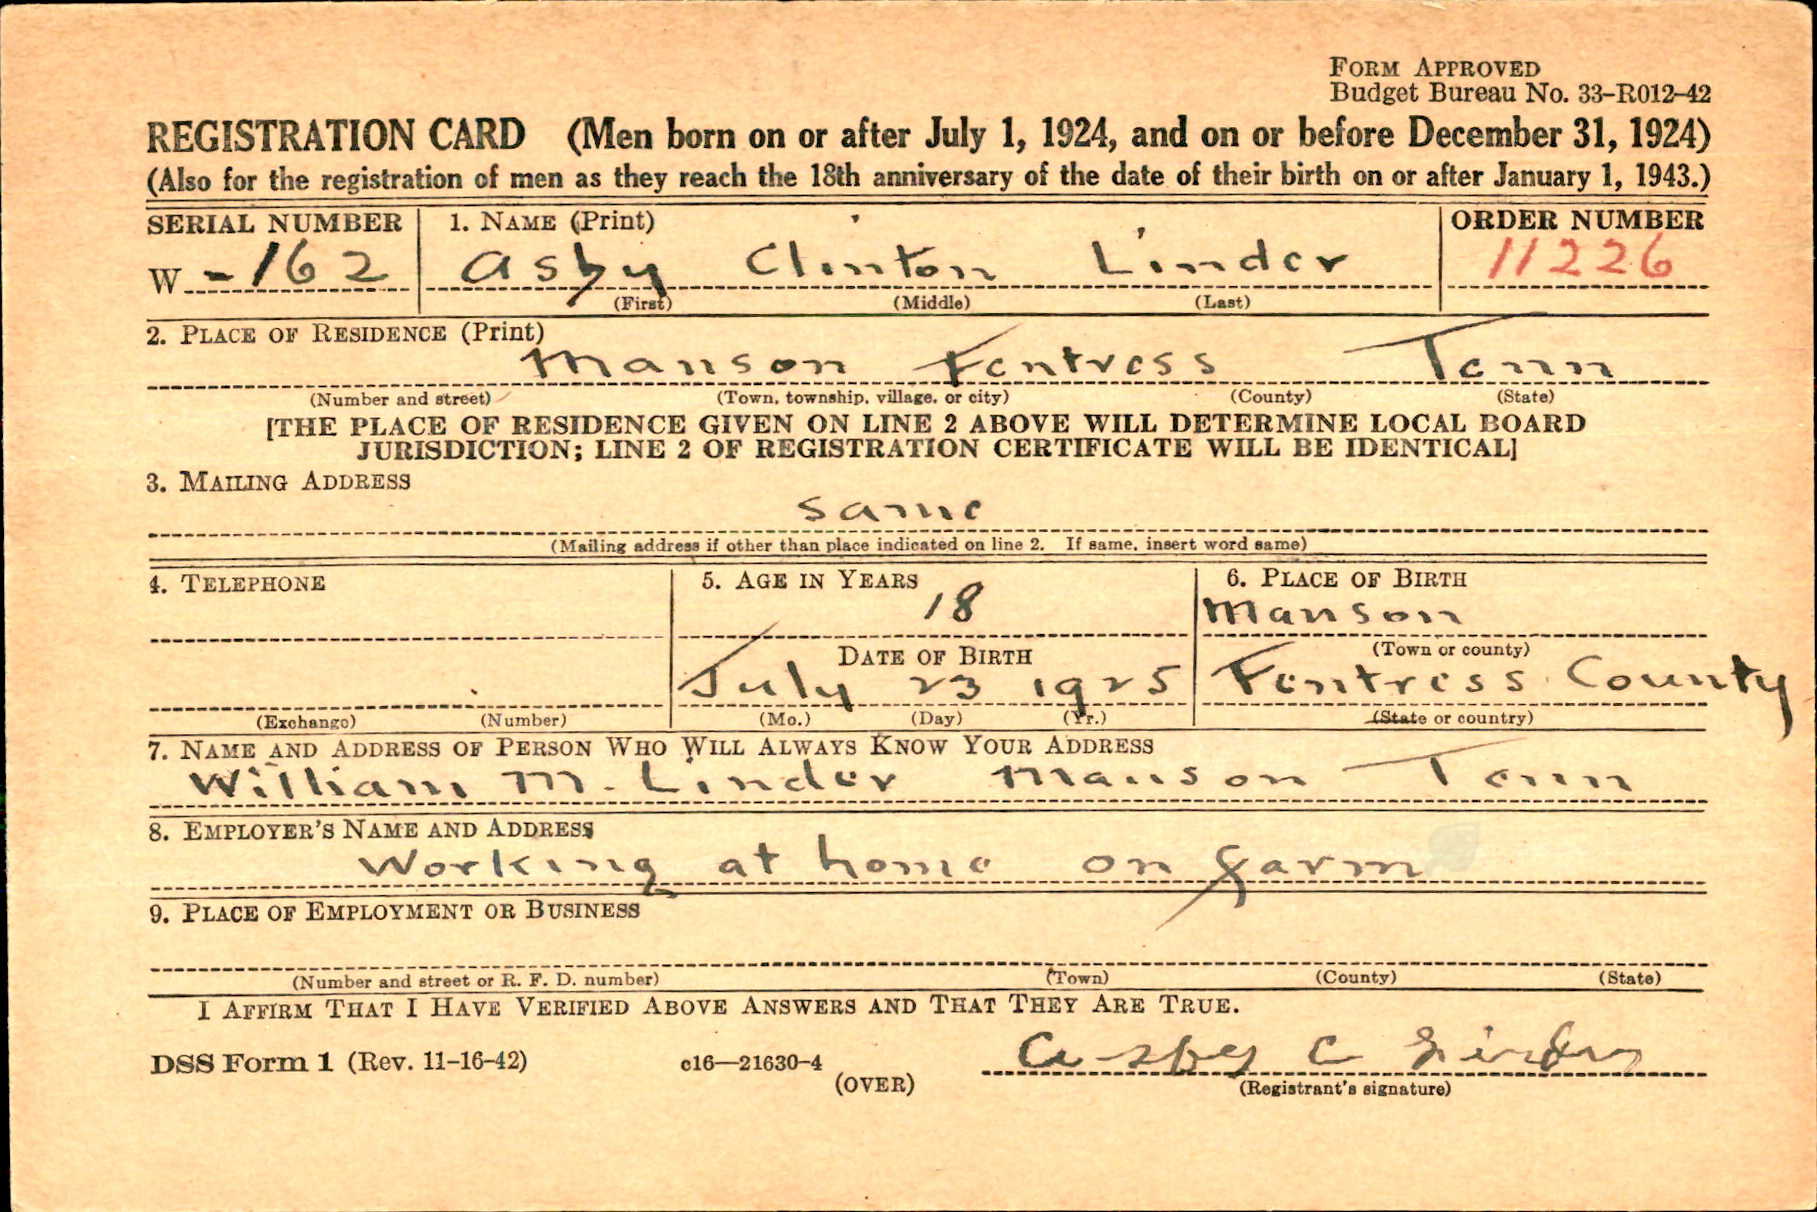 FORM APPROVED
Budget Bureau No. 33-R012-42
REGISTRATION CARD (Men born on or after July 1, 1924, and on or before December 31, 1924)
(Also for the registration of men as they reach the 18th anniversary of the date of their birth on or after January 1, 1943.)
SERIAL NUMBER 1. NAME (Print) ORDER NUMBER
W -162 Asby Clinton Linder 11226
(First) (Middle) (Last)
2. PLACE OF RESIDENCE (Print)
Manson Fentress Tenn
(Number and street) (Town, township, village, or city) (County) (State)
[THE PLACE OF RESIDENCE GIVEN ON LINE 2 ABOVE WILL DETERMINE LOCAL BOARD
JURISDICTION; LINE 2 OF REGISTRATION CERTIFICATE WILL BE IDENTICAL]
3. MAILING ADDRESS
same
(Mailing address if other than place indicated on line 2. If same, insert word same)
4. TELEPHONE 5. AGE IN YEARS 6. PLACE OF BIRTH
18 Manson
DATE OF BIRTH (Town or county)
July 23 1925 Fentress County
(Exchange) (Number) (Mo.) (Day) (Yr.) (State or country)
7. NAME AND ADDRESS OF PERSON WHO WILL ALWAYS KNOW YOUR ADDRESS
William M. Linder Manson Tenn
8. EMPLOYER'S NAME AND ADDRESS
Working at home on farm
9. PLACE OF EMPLOYMENT OR BUSINESS
(Number and street or R. F. D. number) (Town) (County) (State)
I AFFIRM THAT I HAVE VERIFIED ABOVE ANSWERS AND THAT THEY ARE TRUE.
DSS Form 1 (Rev. 11-16-42) c16—21630-4 Asby C Linder
(OVER) (Registrant's signature)